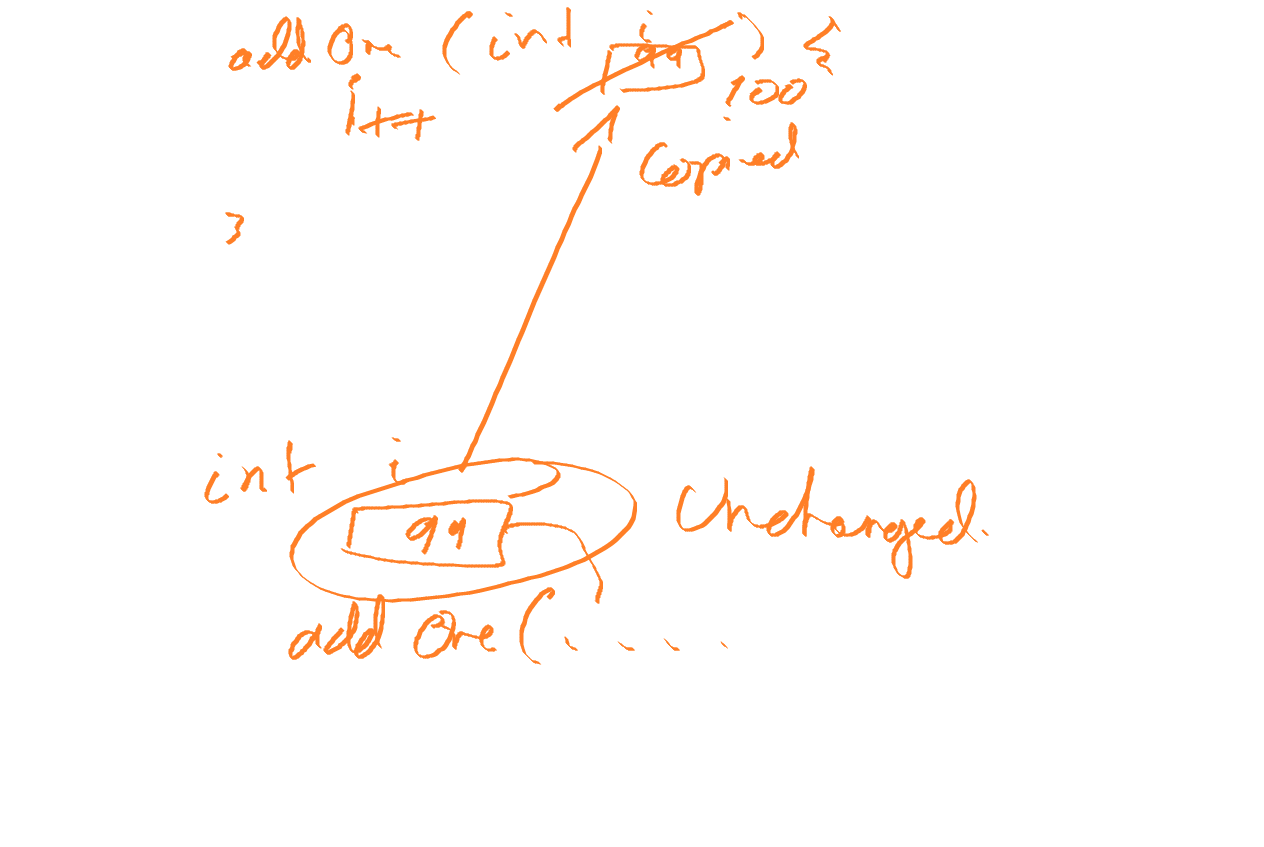 addOne (int i) {
99
100
i++
Copied
}
int i
99
Unchanged.
addOne (. . . .